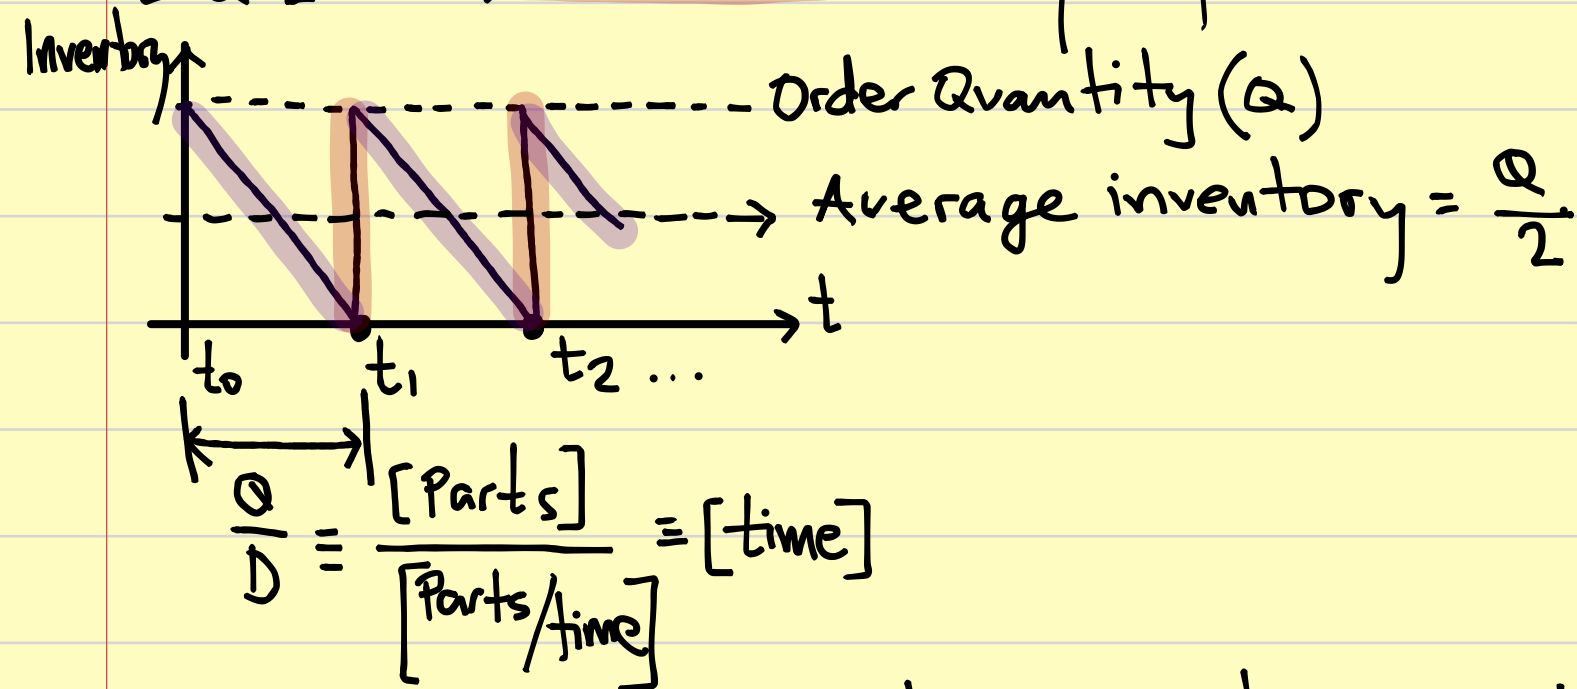 Inventory
Order Quantity (Q)
Average inventory = Q/2
t
t₀ t₁ t₂ ...
Q/D ≡ [Parts]/[Parts/time] ≡ [time]